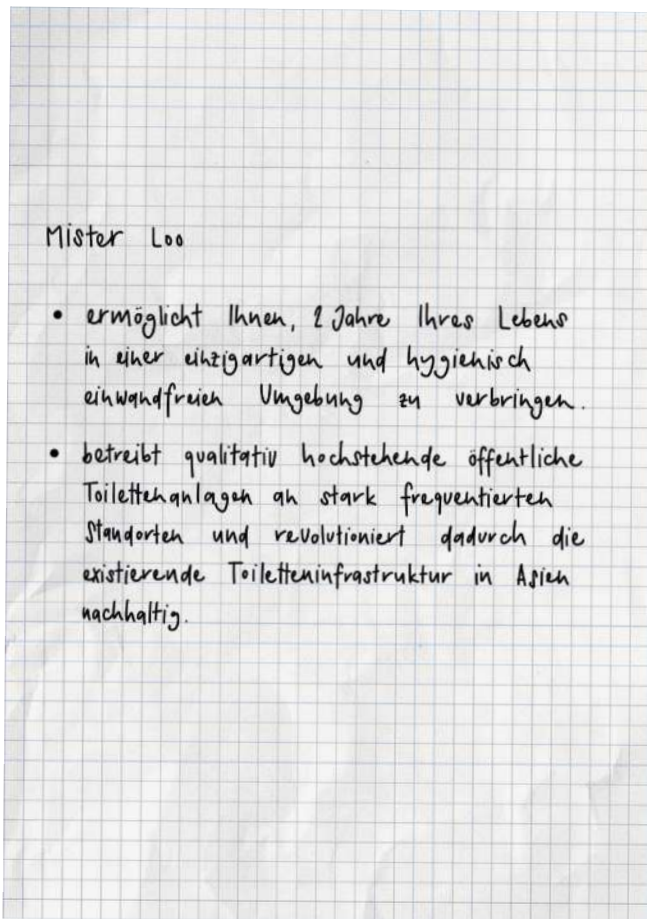 Mister Loo
• ermöglicht Ihnen, 2 Jahre Ihres Lebens
in einer einzigartigen und hygienisch
einwandfreien Umgebung zu verbringen.
• betreibt qualitativ hochstehende öffentliche
Toilettenanlagen an stark frequentierten
Standorten und revolutioniert dadurch die
existierende Toiletteninfrastruktur in Asien
nachhaltig.